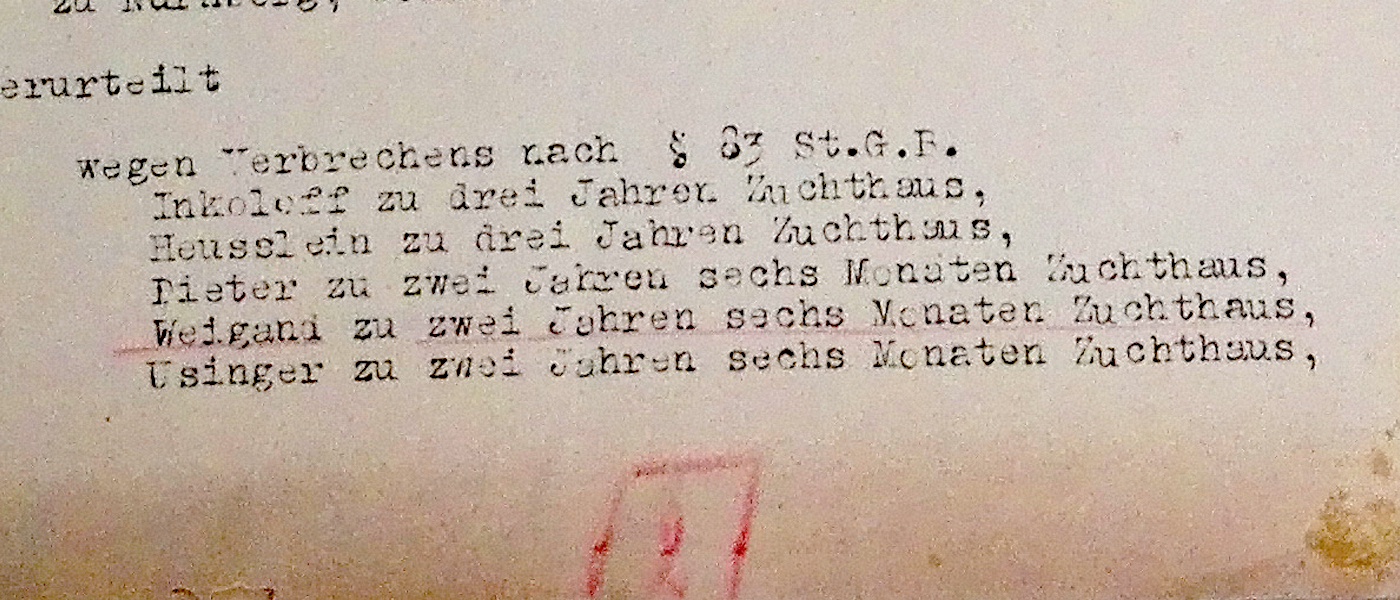 zu Nürnberg,
erurteilt
wegen Verbrechens nach § 83 St.G.B.
Inkoloff zu drei Jahren Zuchthaus,
Heusslein zu drei Jahren Zuchthaus,
Pieter zu zwei Jahren sechs Monaten Zuchthaus,
Weigand zu zwei Jahren sechs Monaten Zuchthaus,
Usinger zu zwei Jahren sechs Monaten Zuchthaus,